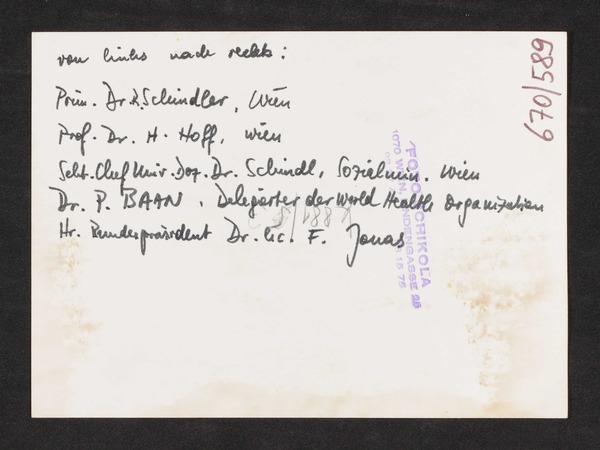 von links nach rechts:
Prim. Dr. R. Schindler, Wien
Prof. Dr. H. Hoff, Wien
Sekt. Chef Univ. Doz. Dr. Schindl, Sozialmin. Wien
Dr. P. BAAN, Delegierter der World Health Organization
Hr. Bundespräsident Dr. h.c. F. Jonas
670/589
FOTO SCHIKOLA
1070 WIEN, LINDENGASSE